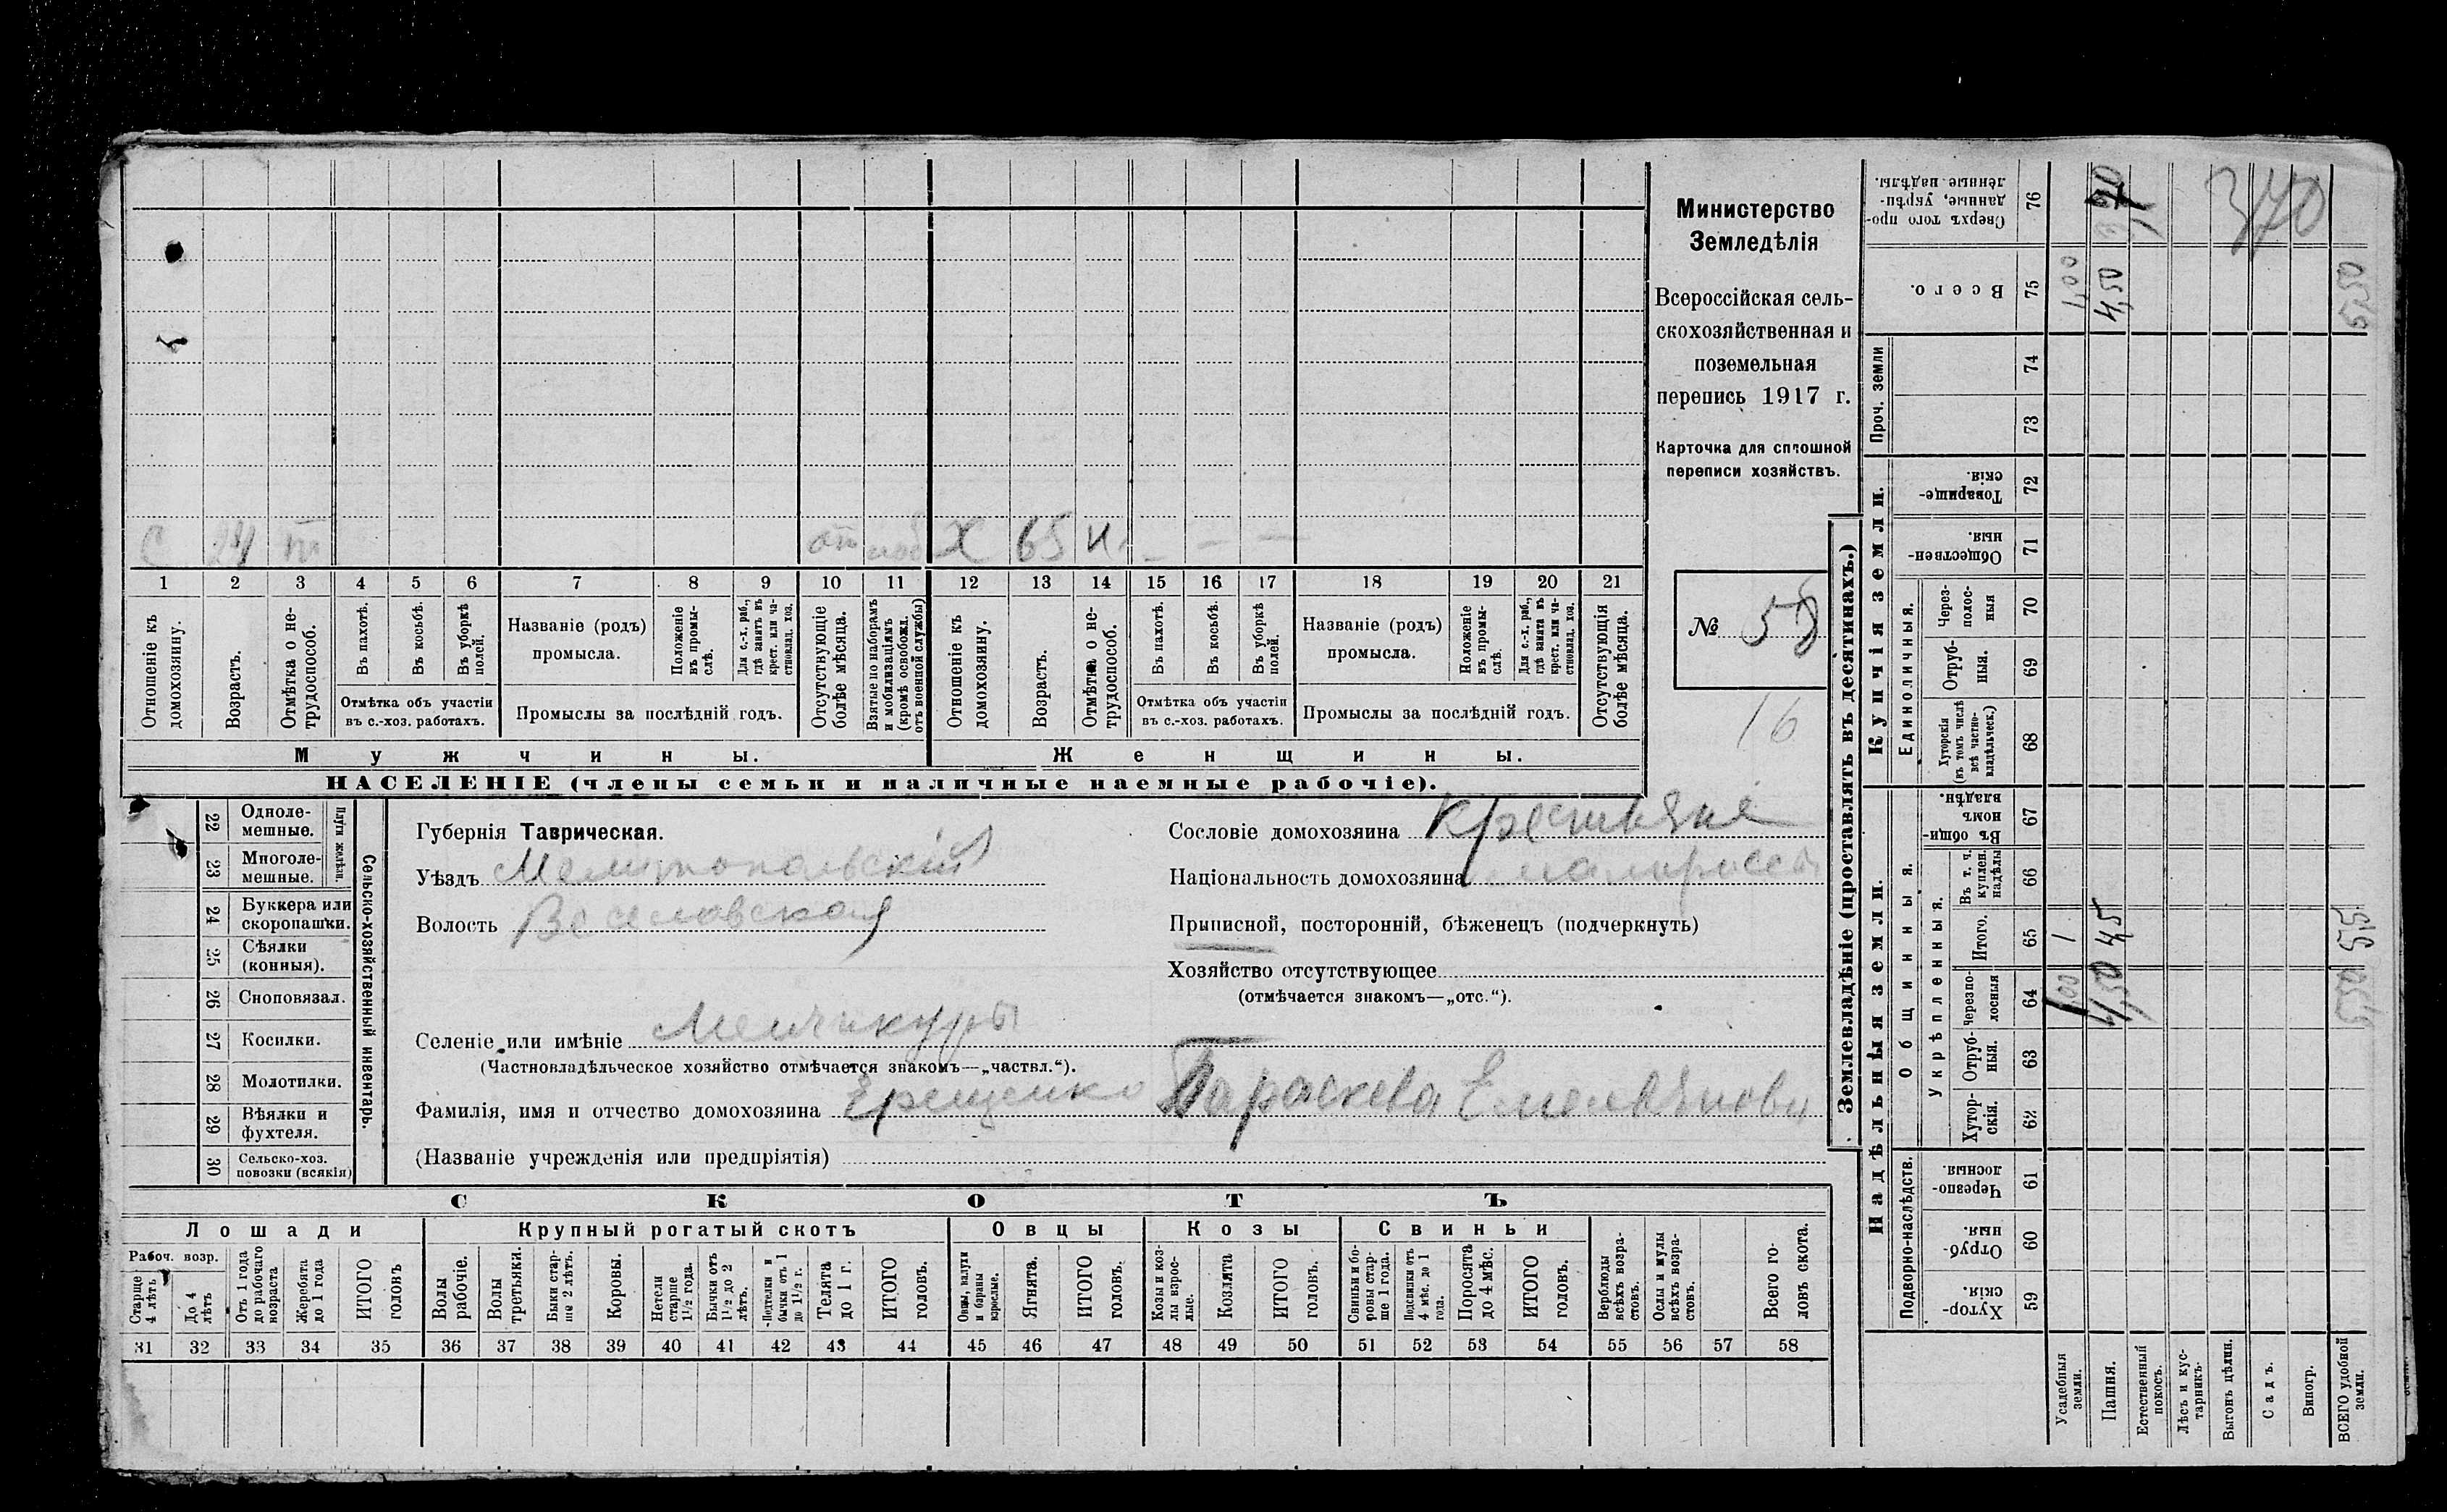 С 24 п от моб Х 65 н. - - -
1 2 3 4 5 6 7 8 9 10 11 12 13 14 15 16 17 18 19 20 21
Отношеніе къ домохозяину.
Возрастъ.
Отмѣтка о не-
трудоспособ.
Въ пахотѣ.
Въ косьбѣ.
Въ уборкѣ
полей.
Отмѣтка объ участіи
въ с.-хоз. работахъ.
Названіе (родъ)
промысла.
Положеніе
въ промы-
слѣ.
Для с.-х. раб.,
гдѣ занятъ въ
крест. или ча-
стновлад. хоз.
Промыслы за послѣдній годъ.
Отсутствующіе
болѣе мѣсяца.
Взятые по наборамъ
и мобилизаціямъ
(кромѣ освобожд.
отъ военной службы)
Отношеніе къ
домохозяину.
Возрастъ.
Отмѣтка о не-
трудоспособ.
Въ пахотѣ.
Въ косьбѣ.
Въ уборкѣ
полей.
Отмѣтка объ участіи
въ с.-хоз. работахъ.
Названіе (родъ)
промысла.
Положеніе
въ промы-
слѣ.
Для с.-х. раб.,
гдѣ занята въ
крест. или ча-
стновлад. хоз.
Промыслы за послѣдній годъ.
Отсутствующія
болѣе мѣсяца.
Мужчины.
Женщины.
НАСЕЛЕНІЕ (члены семьи и наличные наемные рабочіе).
Министерство
Земледѣлія
Всероссійская сель-
скохозяйственная и
поземельная
перепись 1917 г.
Карточка для сплошной
переписи хозяйствъ.
№ 58
16
22 Одноле-
мешные.
23 Многоле-
мешные.
Плуги желѣзн.
24 Буккера или
скоропашки.
25 Сѣялки
(конныя).
26 Сноповязал.
27 Косилки.
28 Молотилки.
29 Вѣялки и
фухтеля.
30 Сельско-хоз.
повозки (всякія)
Сельско-хозяйственный инвентарь.
Губернія Таврическая.
Уѣздъ Мелитопольскій
Волость Веселовская
Селеніе или имѣніе Менчикуры
(Частновладѣльческое хозяйство отмѣчается знакомъ—„частвл.“).
Фамилія, имя и отчество домохозяина Ерещенко Параскева Емельянови
(Названіе учрежденія или предпріятія)
Сословіе домохозяина Крестьяне
Національность домохозяина малоросс
Приписной, посторонній, бѣженецъ (подчеркнуть)
Хозяйство отсутствующее
(отмѣчается знакомъ—„отс.“).
СКОТЪ
Лошади
Крупный рогатый скотъ
Овцы
Козы
Свиньи
Рабоч. возр.
Старше
4 лѣтъ
До 4
лѣтъ
Отъ 1 года
до рабочаго
возраста
Жеребята
до 1 года
ИТОГО
головъ
Волы
рабочіе.
Волы
третьяки.
Быки стар-
ше 2 лѣтъ.
Коровы.
Нетели
старше
1½ года.
Бычки отъ
1½ до 2
лѣтъ.
Подтелки и
бычки отъ 1
до 1½ г.
Телята
до 1 г.
ИТОГО
головъ.
Овцы, валухи
и бараны
взрослые.
Ягнята.
ИТОГО
головъ.
Козы и коз-
лы взрос-
лые.
Козлята
ИТОГО
головъ.
Свиньи и бо-
ровы стар-
ше 1 года.
Подсвинки отъ
4 мѣс. до 1
года.
Поросята
до 4 мѣс.
ИТОГО
головъ.
Верблюды
всѣхъ возра-
стовъ.
Ослы и мулы
всѣхъ возра-
стовъ.
Всего го-
ловъ скота.
31 32 33 34 35 36 37 38 39 40 41 42 43 44 45 46 47 48 49 50 51 52 53 54 55 56 57 58
Землевладѣніе (проставлять въ десятинахъ.)
Надѣльныя земли.
Купчія земли.
Проч. земли
Подворно-наслѣдств.
Общинныя.
Укрѣпленныя.
Единоличныя.
Сверхъ того про-
данные, укрѣп-
ленные надѣлы.
76
370
Всего.
75 1,00 4,50 5,50
74
73
Товарище-
скія.
72
Обществен-
ныя.
71
Через-
полос-
ныя
70
Отруб-
ныя.
69
Хуторскія
(въ томъ числѣ
всѣ частно-
владѣльческ.)
68
Въ общин-
номъ
владѣн.
67
Въ т. ч.
куплен.
надѣлы
66
Итого.
65 1 4,5 5,5
Черезпо-
лосныя
64 1,00 4,50 5,50
Отруб-
ныя.
63
Хутор-
скія.
62
Черезпо-
лосныя.
61
Отруб-
ныя.
60
Хутор-
скія.
59
Усадебныя
земли.
Пашня.
Естественный
покосъ.
Лѣсъ и кус-
тарникъ.
Выгонъ цѣлин.
Садъ.
Виногр.
ВСЕГО удобной
земли.